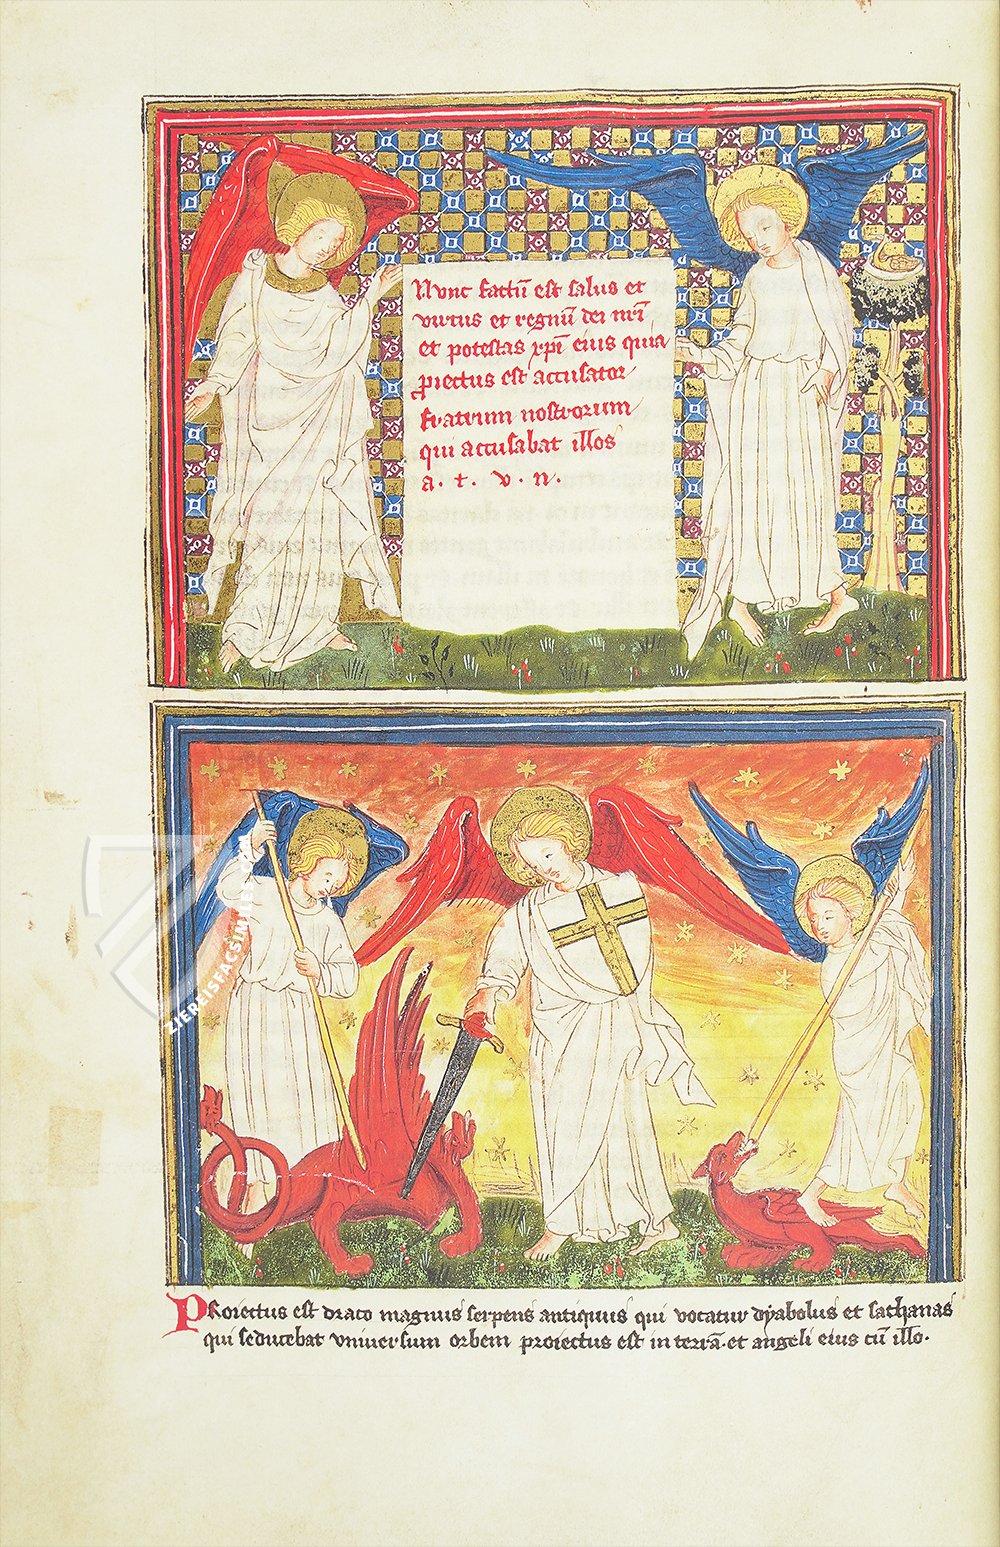 Nunc factū est salus et
virtus et regnū dei nr̄i
et potestas xp̄i eius quia
proiectus est accusator
fratrum nostrorum
qui accusabat illos
a. t. v. n.
ZIEREISFACSIMILES
PRoiectus est draco magnus serpens antiquus qui vocatur dyabolus et sathanas
qui seducebat vniversum orbem proiectus est in terrā. et angeli eius cū illo.